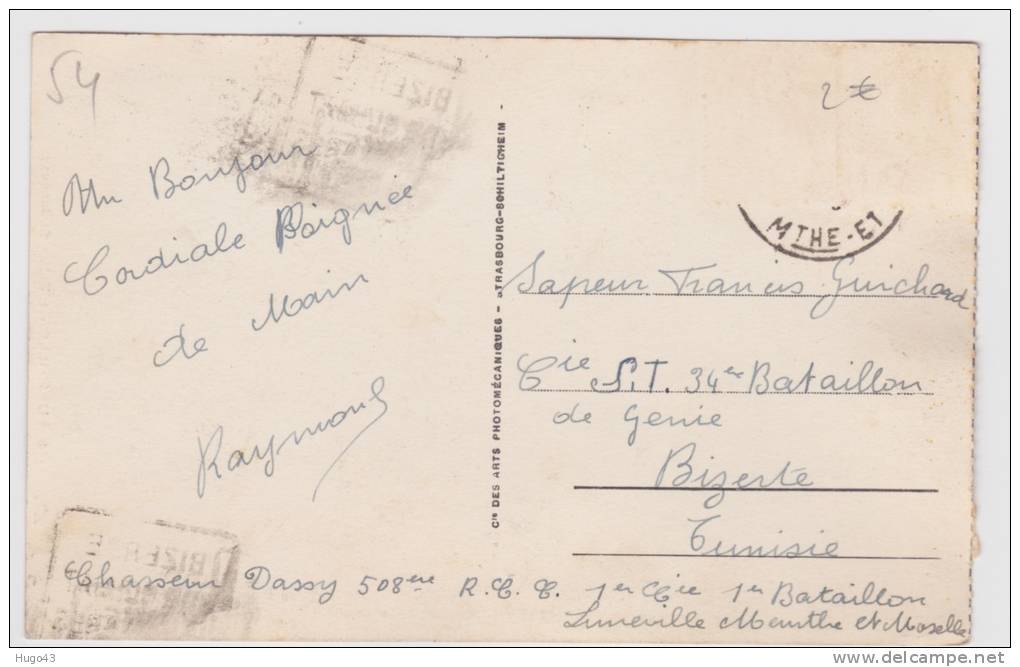 54
2€
Un Bonjour
Cordiale Poignée
de Main
Raymond
BIZER E
Cie DES ARTS PHOTOMÉCANIQUES - STRASBOURG-SCHILTIGHEIM -
MTHE-ET
Sapeur Francis Guichard
Cie S.T. 34ème Bataillon
de Génie
Bizerte
Tunisie
BIZER E
Chasseur Dassy 508ème R.C.C. 1er Cie 1er Bataillon
Luneville Meurthe et Moselle
Hugo43
www.delcampe.net